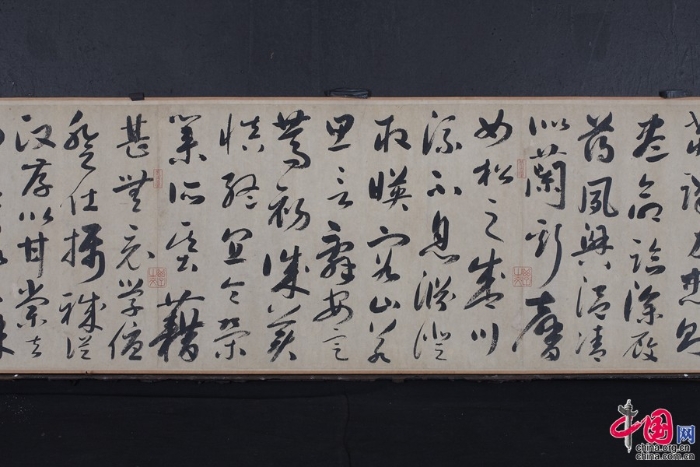 盡命臨深履
薄夙興溫凊
似蘭斯馨
如松之盛川
流不息淵澄
取暎容止若
思言辭安定
篤初誠美
慎終宜令榮
業所基藉
甚無竟學優
登仕攝職從
政存以甘棠去
中国网
china.org.cn
china.com.cn